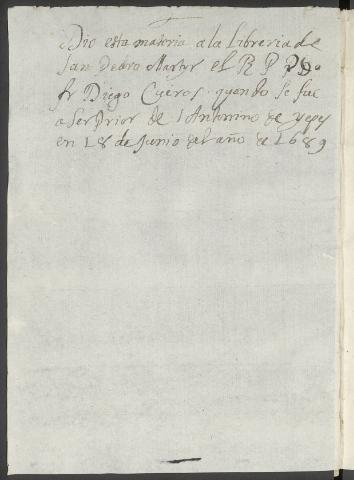 Dio esta materia a la Libreria de
San Pedro Martyr el R P P
fr Diego Cueros quando se fue
a ser Prior de S Antonino de yepes
en 18 de Junio del año de 1689